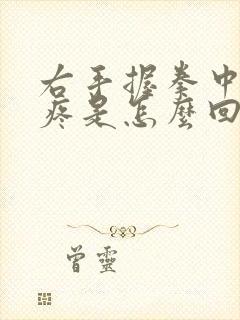 右手握拳中
疼是怎麼回
曾靈